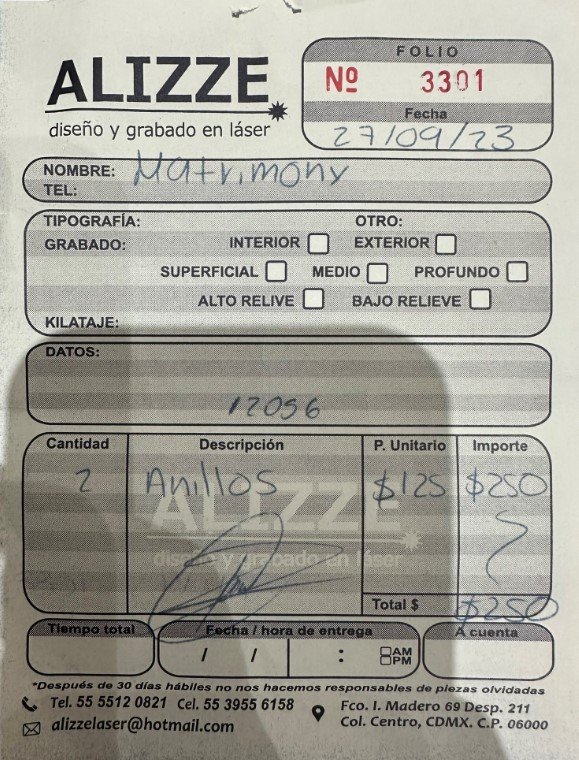 ALIZZE
diseño y grabado en láser
FOLIO
Nº 3301
Fecha
27/09/23
NOMBRE: Matrimony
TEL:
TIPOGRAFÍA: OTRO:
GRABADO: INTERIOR EXTERIOR
SUPERFICIAL MEDIO PROFUNDO
ALTO RELIVE BAJO RELIEVE
KILATAJE:
DATOS:
12056
Cantidad Descripción P. Unitario Importe
2 Anillos $125 $250
ALIZZE
diseño y grabado en láser
Total $ $250
Tiempo total Fecha / hora de entrega A cuenta
/ / : AM
PM
*Después de 30 días hábiles no nos hacemos responsables de piezas olvidadas
Tel. 55 5512 0821 Cel. 55 3955 6158
alizzelaser@hotmail.com
Fco. I. Madero 69 Desp. 211
Col. Centro, CDMX. C.P. 06000